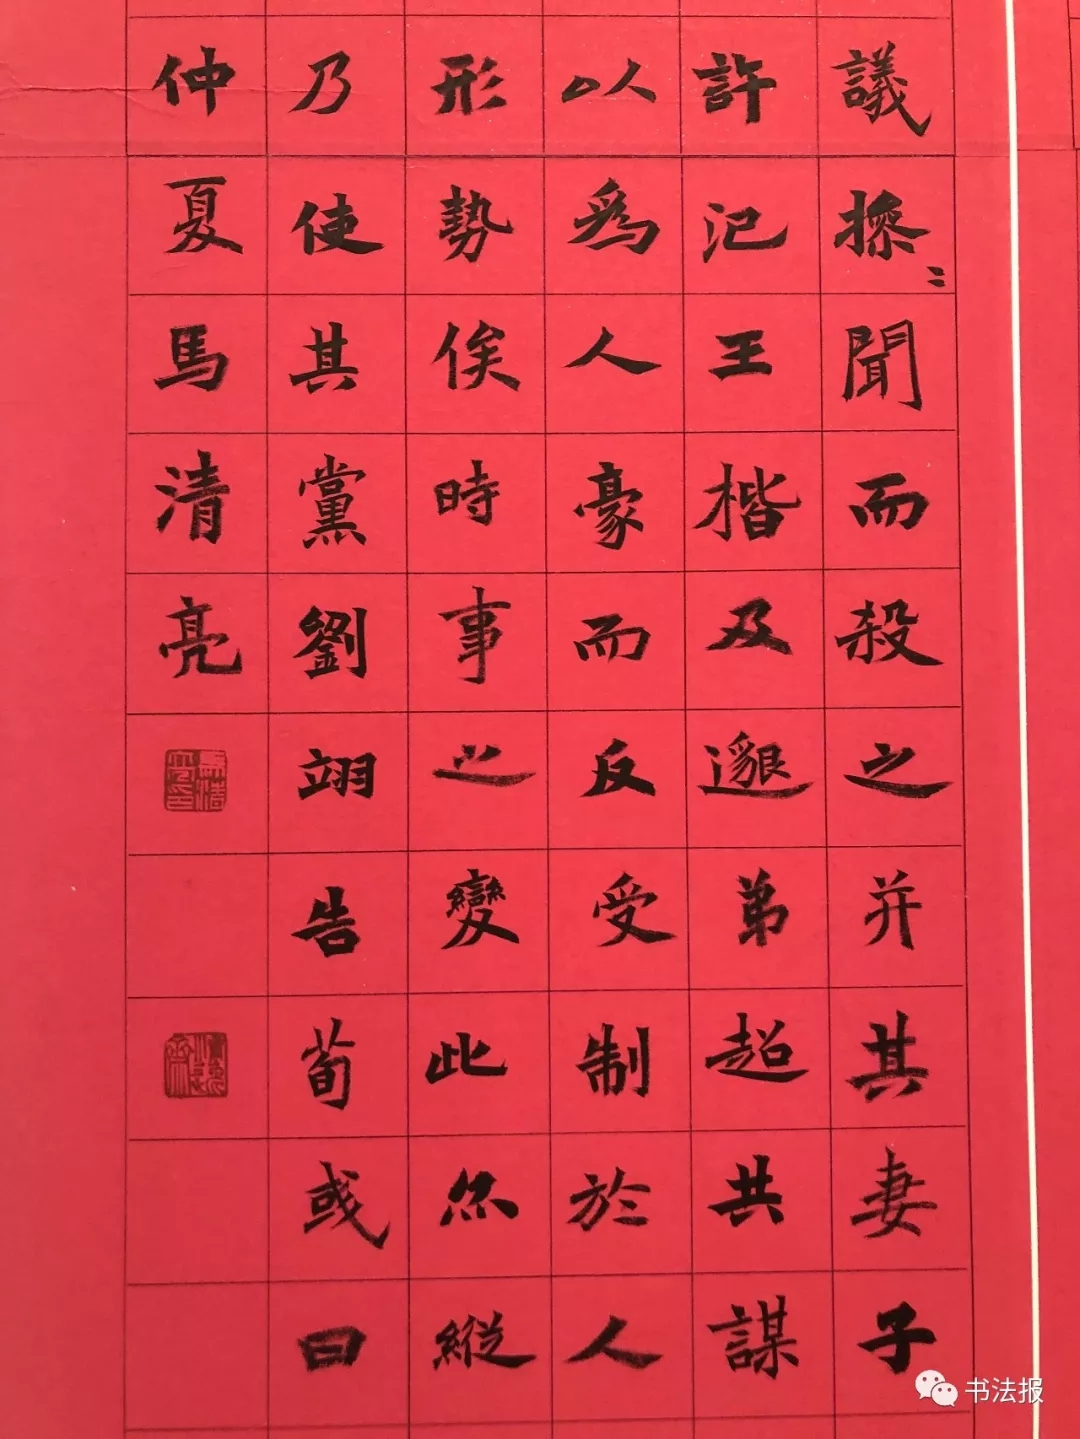 議操〻聞而殺之并其妻子
許汜王楷及邈弟超共謀
以為人豪而反受制於人
形勢俟時事之變此亦縱
乃使其黨劉翊告荀彧曰
仲夏馬清亮
馬清亮印
书法报